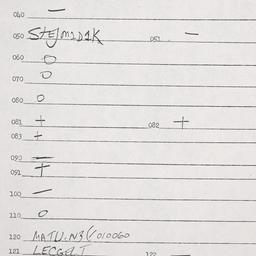 040 —
050 STEJMIDIK 051 —
060 O
070 O
080 O
081 + 082 +
083 +
090 =
091 +
100 —
110 O
120 MATU.N3(/010060
121 LECGET 122 —